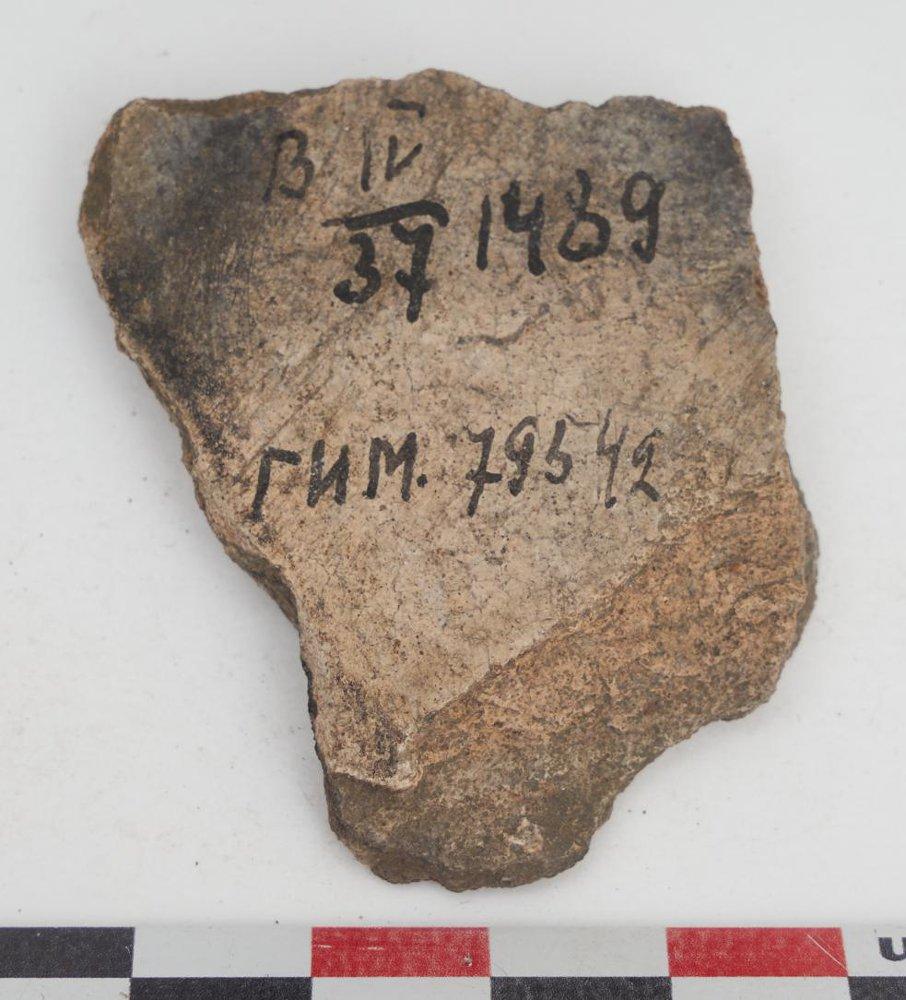 В IV
37 1489
ГИМ. 79542